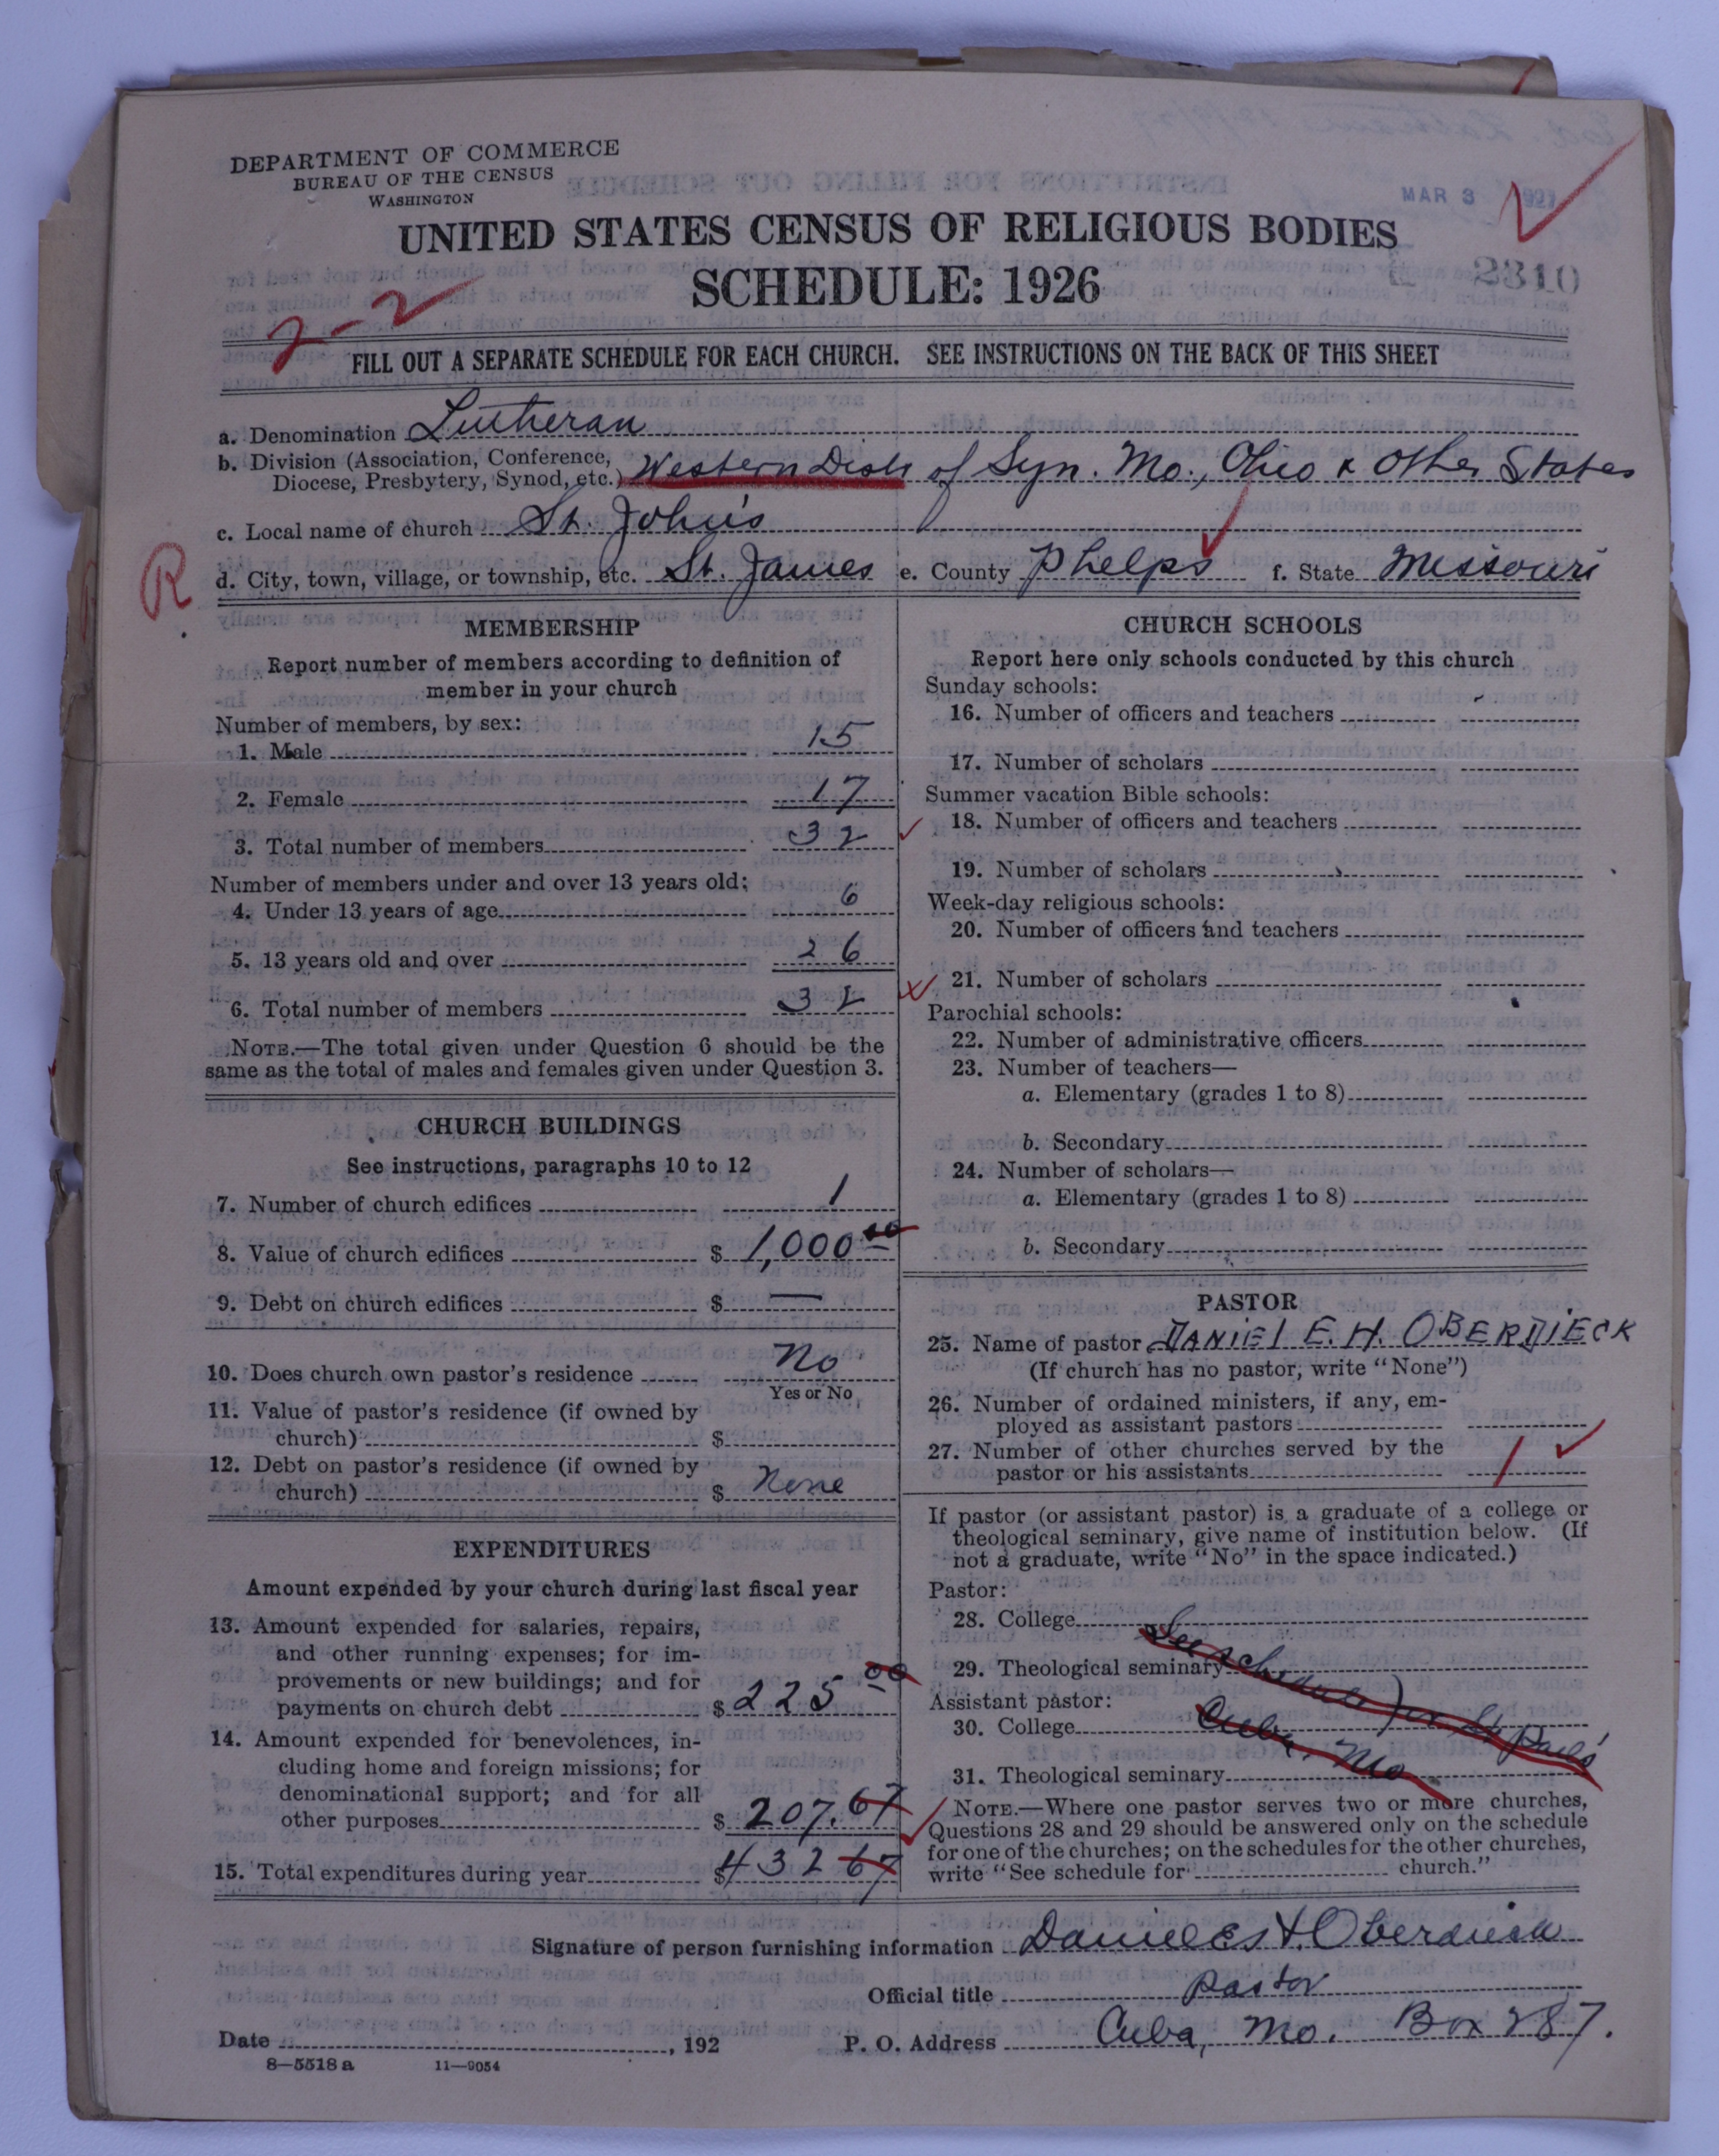 DEPARTMENT OF COMMERCE
BUREAU OF THE CENSUS
WASHINGTON
MAR 3 1927
UNITED STATES CENSUS OF RELIGIOUS BODIES
SCHEDULE: 1926
2310
2-2
FILL OUT A SEPARATE SCHEDULE FOR EACH CHURCH. SEE INSTRUCTIONS ON THE BACK OF THIS SHEET
a. Denomination Lutheran
b. Division (Association, Conference,
Diocese, Presbytery, Synod, etc.) Western Dist. of Syn. Mo., Ohio & Other States
c. Local name of church St. John's
R
d. City, town, village, or township, etc. St. James e. County Phelps f. State Missouri
MEMBERSHIP
Report number of members according to definition of
member in your church
Number of members, by sex:
1. Male 15
2. Female 17
3. Total number of members 32
Number of members under and over 13 years old:
4. Under 13 years of age 6
5. 13 years old and over 26
6. Total number of members 32
NOTE.—The total given under Question 6 should be the
same as the total of males and females given under Question 3.
CHURCH BUILDINGS
See instructions, paragraphs 10 to 12
7. Number of church edifices 1
8. Value of church edifices $ 1,000 00
9. Debt on church edifices $ —
10. Does church own pastor's residence No
Yes or No
11. Value of pastor's residence (if owned by
church) $
12. Debt on pastor's residence (if owned by
church) $ None
EXPENDITURES
Amount expended by your church during last fiscal year
13. Amount expended for salaries, repairs,
and other running expenses; for im-
provements or new buildings; and for
payments on church debt $ 225 00
14. Amount expended for benevolences, in-
cluding home and foreign missions; for
denominational support; and for all
other purposes $ 207.67
15. Total expenditures during year $ 432 67
CHURCH SCHOOLS
Report here only schools conducted by this church
Sunday schools:
16. Number of officers and teachers
17. Number of scholars
Summer vacation Bible schools:
18. Number of officers and teachers
19. Number of scholars
Week-day religious schools:
20. Number of officers and teachers
21. Number of scholars
Parochial schools:
22. Number of administrative officers
23. Number of teachers—
a. Elementary (grades 1 to 8)
b. Secondary
24. Number of scholars—
a. Elementary (grades 1 to 8)
b. Secondary
PASTOR
25. Name of pastor DANIEL E. H. OBERDIECK
(If church has no pastor, write "None")
26. Number of ordained ministers, if any, em-
ployed as assistant pastors
27. Number of other churches served by the
pastor or his assistants 1
If pastor (or assistant pastor) is a graduate of a college or
theological seminary, give name of institution below. (If
not a graduate, write "No" in the space indicated.)
Pastor:
28. College
29. Theological seminary
See schedule for St. Paul's
Assistant pastor:
30. College
Cuba, Mo
31. Theological seminary
NOTE.—Where one pastor serves two or more churches,
Questions 28 and 29 should be answered only on the schedule
for one of the churches; on the schedules for the other churches,
write "See schedule for church."
Signature of person furnishing information Daniel E. H. Oberdieck
Official title Pastor
Date , 192 P. O. Address Cuba, Mo. Box 287.
8—5518 a 11—9054